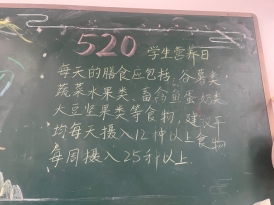 520 学生营养日
每天的膳食应包括谷薯类
蔬菜水果类、畜禽鱼蛋奶类
大豆坚果类等食物,建议平
均每天摄入12种以上食物
每周摄入25种以上